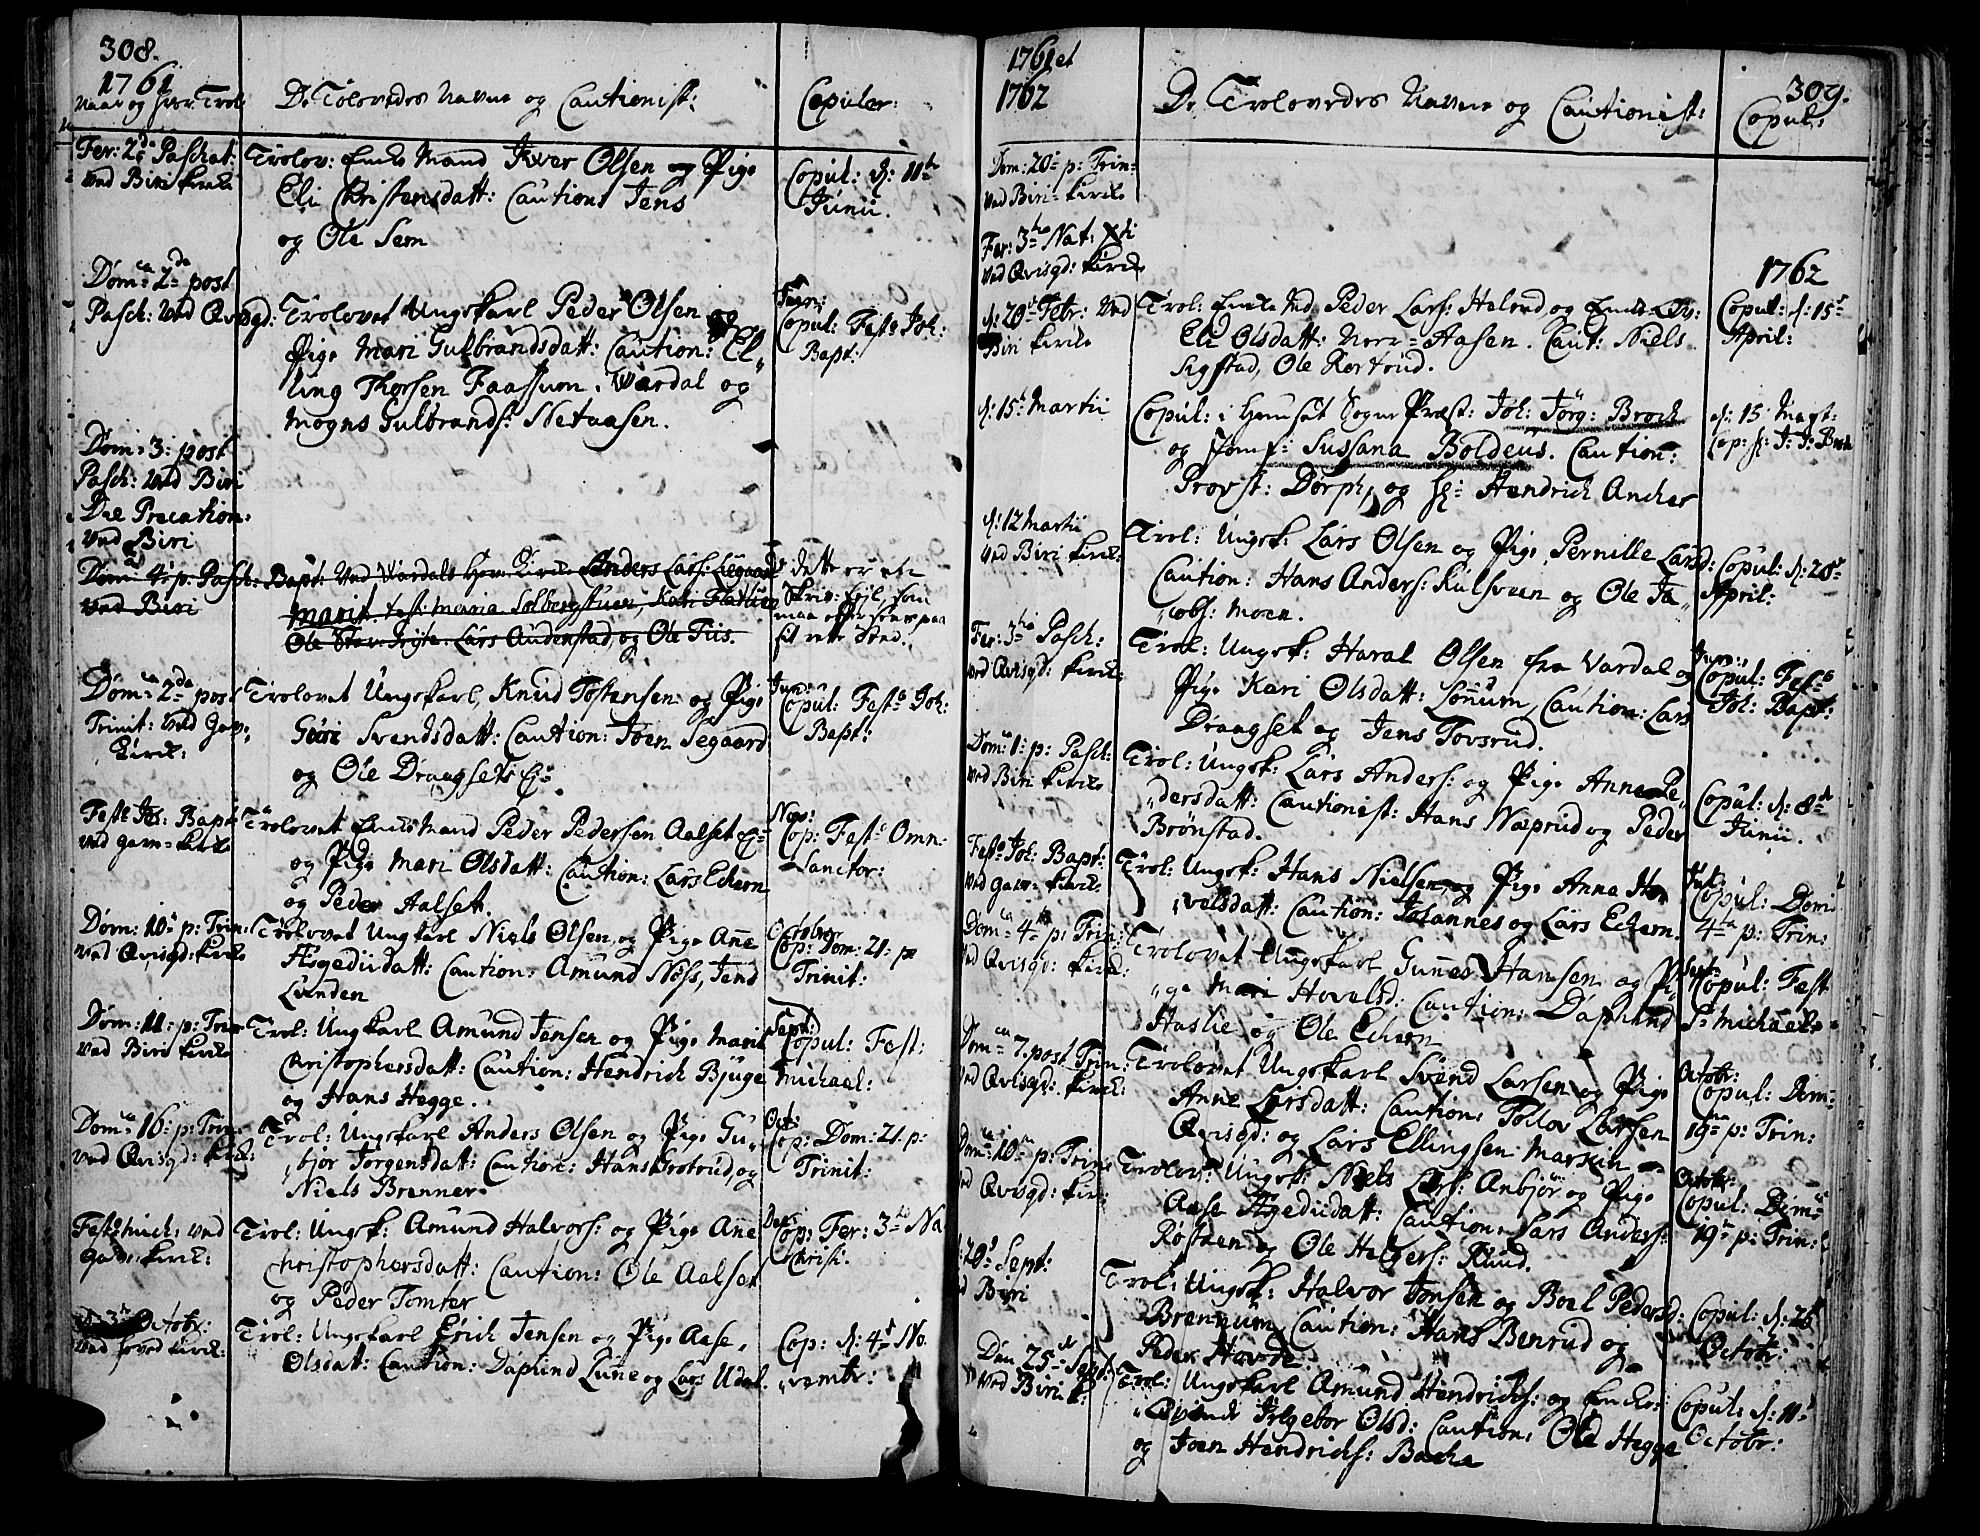 308.
1761
Naar og hvor Trol:
De Tolovedes Navne og Cautionist:
Copuler:
Fer: 2de Paschat:
ved Biri Kirke
Trolov: Enke Mand Iver Olsen og Pige
Eli Christensdatt: Caution: Jens
og Ole Sem
Copul: d: 11te
Junii.
Domca 2da post
Pasch: ved Qvisgd:
Trolovet Ungekarl Peder Olsen og
Pige Mari Gulbrandsdatt: Caution: El„
ling Thorsen Faassum i Wardal og
Mogns Gulbrands: Netaasen.
Copul: Festo Joh:
Bapt:
Dom: 3: post
Pasch: ved Biri
Die Precation:
ved Biri
Dom: 4: p: Pasch: Bapt: ved Wardals Hov: Kirke Anders Lars:
ved Biri
Marit. test: Maria Solbergstuen, Kari
Lars Audenstad, og Ole Tiis.
dette er en
Skriv: Fejl, som
maa
sit rette Sted.
Domca 2da post
Trinit: ved Gav:
Kirk:
Trolovet Ungekarl, Knud Tostensen og Pige
Guri Svendsdatt: Caution: Joen Segaard
og Ole Draagsets Ej:
Jun:
Copul: Festo Joh:
Bapt:
Festo Joh: Bapt:
ved Gavn: Kirk
Trolovet Enke Mand Peder Pedersen Aalset Ej:
og Pige Mari Olsdatt: Caution: Lars Echern
og Peder Aalset.
Nov:
Cop: Festo Omn:
Sanctor:
Dom: 10: p: Trin:
ved Qvisgd: Kirke
Trolovet Ungkarl Niels Olsen, og Pige Ane
Caution: Amund Nøss, Jend
Lunden
October
Cop: Dom: 21. p
Trinit:
Dom: 11: p: Trin
ved Biri Kirke
Trol: Ungkarl Amund Jensen og Pige Marit
Christophersdatt: Caution: Hendrich Bjuge
og Hans Hegge.
Sept:
Copul: Fest:
Michael:
Domca 16: p: Trin
ved Qvisgd: Kirk:
Trol: Ungekarl Anders Olsen og Pige Gu„
„bjor Jorgensdatt: Caution: Hans Grotrud, og
Niels Brenner
Oct:
Cop: Dom: 21. p:
Trinit:
Festo Mich: ved
Gavn: Kirk:
Trol: Ungek: Amund Halvors: og Pige Ane
Christophersdatt: Caution: Ole Aalset
og Peder Tomter
Dec:
Cop: Fer: 3tia Na
Christi.
Octobr:
ved Hoved Kirk:
Trol: Ungekarl Erich Jensen og Pige Aase,
Olsdatt: Caution: Daplund Lune og Lars Udal.
Cop: d: 4de No
„vembr:
1761 et
1762
De Trolovedes Navne og Cautionist:
309.
Copul:
Dom: 20: p: Trin:
ved Biri Kirke
Fer: 3tia Nat: Xti
ved Qvisgd: Kirke
1762
d: 20de Febr: ved
Biri Kirke
Trol: Enke Md Peder Lars: Halord og Enke Qv:
Eli Olsdatt: Norr-Aasen. Caut: Niels
Sigstad, Ole Rertrud.
Copul: d: 15de
April:
d: 15de Martii
Copul: i Huuset Sogne Præst: Joh: Jörg: Broch
og Jomf: Sussana Boldeus. Caution:
Provst: Dorph, og Hr: Hendrich Ancher
d: 15: Mart:
Cop: H: J: J: Broch
d: 12 Martii
ved Biri Kirk:
Trol: Ungek: Lars Olsen og Pige Pernille Land:
Caution: Hans Anders: Kulsveen og Ole Ja„
„cobs: Moen.
Copul: d: 20de
April:
Fer: 3tia Pasch:
ved Qvisgd: Kirk:
Trol: Ungek: Haral Olsen fra Vardal og
Pige Kari Olsdatt: Sönnum, Caution: Lars
Draagset og Jens Tovsrud.
Jun:
Copul: Festo
Joh: Bapt:
Dom: 1: p: Pasch:
ved Biri Kirke
Trol: Ungek: Lars Anders: og Pige Anne Pe„
„dersdatt: Cautionist: Hans Næprud og Peder
Brönstad.
Copul: d: 8de
Junii.
Festo Joh: Bapt:
ved Gavn: Kirke
Trol: Ungek: Hans Nielsen, og Pige Anne Ho„
„velsdatt: Caution: Johannes og Lars Echern.
Jul:
Copul: Dom:
4ta p: Trin:
Domca 4ta p: Trin:
ved Qvisgd: Kirk:
Trolovet Ungekarl Gunes Hansen og Pi„
„ge Mari Hovelsd: Caution: Daplund
Haslie og Ole Echern
Sept:
Copul: Fest
S: Michaels
Domca 7. post Trin:
ved Qvisgd: Kirk:
Trolovet Ungekarl Svend Larsen og Pige
Anne Larsdatt: Caution: Tollov Larsen
Qvisgd: og Lars Ellingsen Markin
Octobr:
Copul: Dom:
19na p: Trin:
Domca 10ma p: Trin:
ved Qvisgd: Kirk:
Trolov: Ungek: Niels Lars: Anbjör og Pige
Aase Caution: Lars Anders:
Røstøen og Ole Helgers: Rund.
Octobr:
Copul: Dom:
19na p: Trin:
20de Sept:
ved Biri
Trol: Ungek: Halvor Jonsen og Boel Pedersd:
Brennum, Caution: Hans Benrud og
Peder Hovde
Copul: d: 26de
Octobr:
Den 25de Sept:
ved Biri K:
Trol: Ungekarl Amund Hendrichs: og Enke:
„Qvinde Ingebor Olsd: Caution: Ole Hegge
og Joen Hendrichs: Bache
Copul: d: 11te
Octobr: